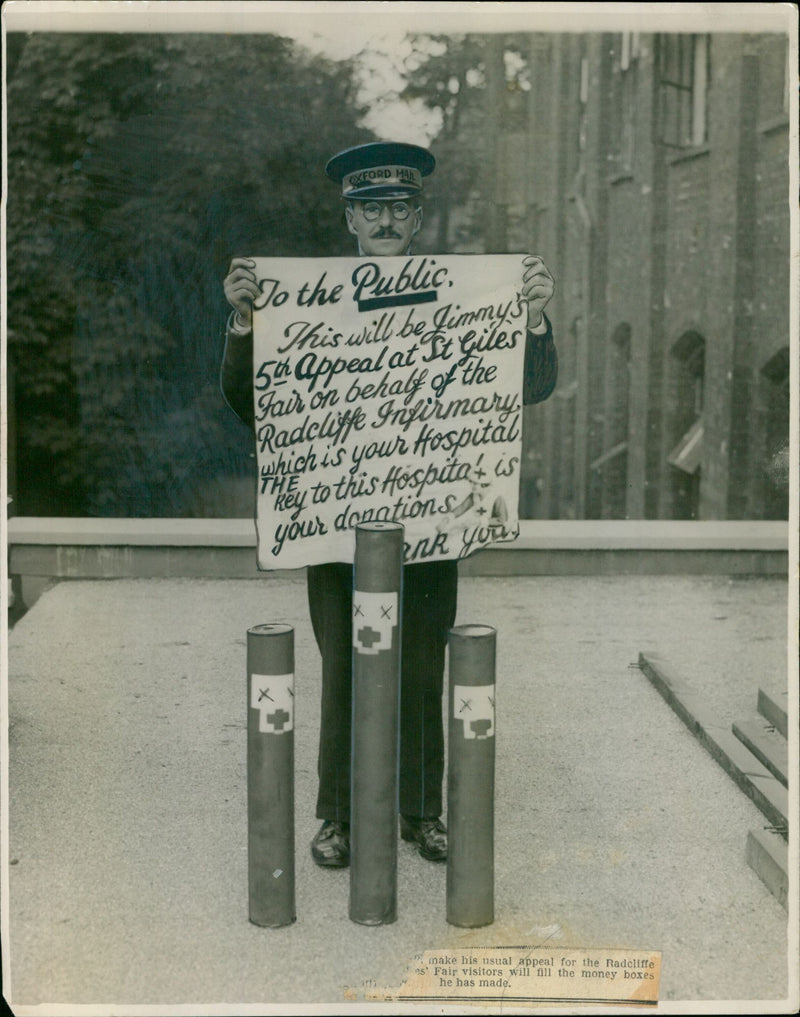 OXFORD MAIL
To the Public.
This will be Jimmy's
5th Appeal at St Giles
Fair on behalf of the
Radcliffe Infirmary,
which is your Hospital
THE
Key to this Hospital is
your donations
ank you.
make his usual appeal for the Radcliffe
es' Fair visitors will fill the money boxes
he has made.